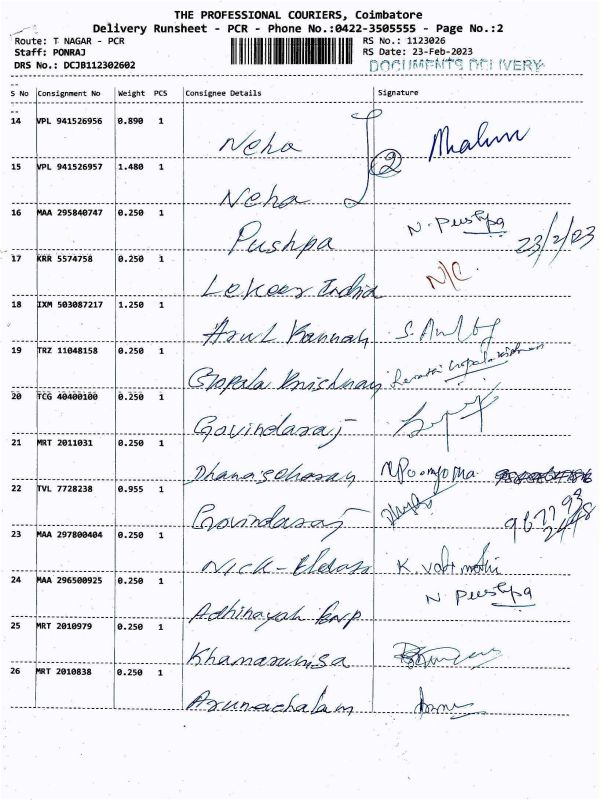 THE PROFESSIONAL COURIERS, Coimbatore
Delivery Runsheet - PCR - Phone No.:0422-3505555 - Page No.:2
Route: T NAGAR - PCR RS No.: 1123026
Staff: PONRAJ RS Date: 23-Feb-2023
DRS No.: DCJB112302602 DOCUMENTS DELIVERY
S No Consignment No Weight PCS Consignee Details Signature
14 VPL 941526956 0.890 1
Neha
2
15 VPL 941526957 1.480 1
Neha
16 MAA 295840747 0.250 1
Pushpa N. Pushpa 23/2/23
17 KRR 5574758 0.250 1 N/C.
India
18 IXM 503087217 1.250 1
Arul Kannan
19 TRZ 11048158 0.250 1
Gopala Krishnan
20 TCG 40400100 0.250 1
Govindaraj
21 MRT 2011031 0.250 1
Dhanasekaran
22 TVL 7728238 0.955 1
Govindaraj
23 MAA 297800404 0.250 1
Nick - K.
24 MAA 296500925 0.250 1 N. Pushpa
Adhinayah
25 MRT 2010979 0.250 1
Khamarunisa
26 MRT 2010838 0.250 1
Arunachalam